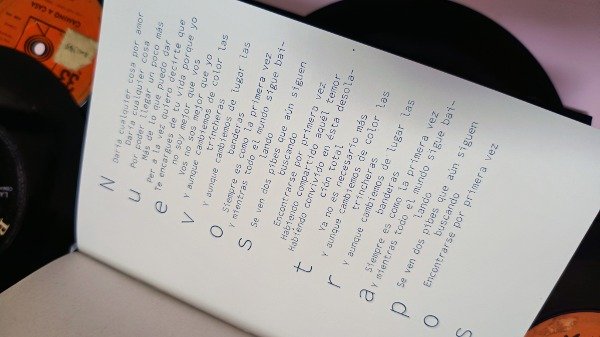 CAMINO A CASA
33
Nuevos trapos
Daría cualquier cosa por amor
Daría cualquier cosa
Por poder llegar un poco más
Más de lo que puedo dar
Per a la vez quiero decirte que
Te encargues de tu vida porque yo
no soy mejor que vos
Vos no sos mejor que yo
Y aunque cambiemos de color las
trincheras
Y aunque cambiemos de lugar las
banderas
Siempre es como la primera vez
Y mientras todo el mundo sigue bai-
lando
Se ven dos pibes que aún siguen
buscando
Encontrarse por primera vez
Habiendo compartido aquél temor
Habiendo convivido en ésta desola-
ción total
Ya no es necesario más
Y aunque cambiemos de color las
trincheras
Y aunque cambiemos de lugar las
banderas
Siempre es como la primera vez
Y mientras todo el mundo sigue bai-
lando
Se ven dos pibes que aún siguen
buscando
Encontrarse por primera vez